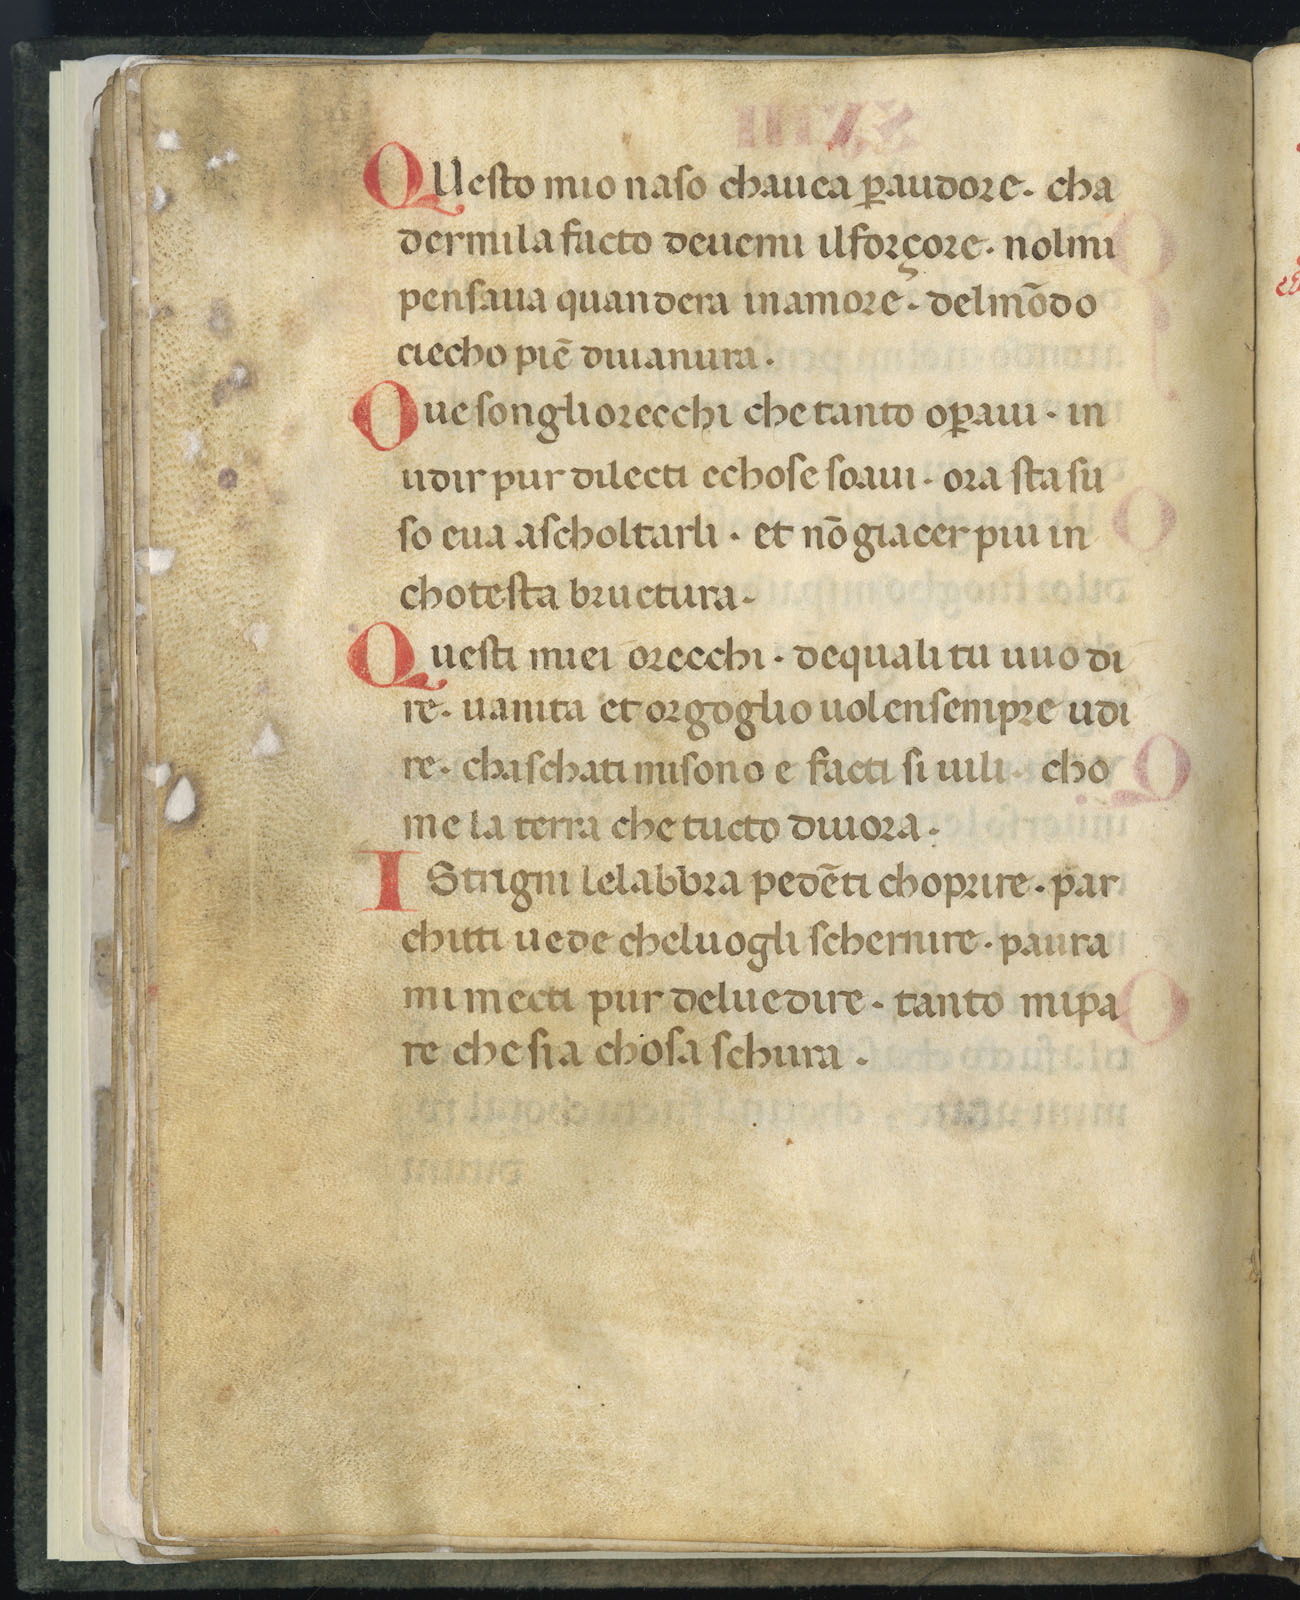 QUesto mio naso chauea ꝑaudore. cha
dermila facto deuemi ilforçore. nolmi
pensaua quandera inamore. delmōdo
ciecho piē diuanura.
Que songliorecchi che tanto oꝑaui. in
udir pur dilecti echose soaui. ora sta su
so eua ascholtarli. et nō giacer piu in
chotesta bructura.
Questi miei orecchi. dequali tu uuo di
re. uanita et orgoglio uolensempre udi
re. chaschati misono e facti si uili. cho
me la terra che tucto diuora.
IStrigni lelabbra pedēti choprire. par
chitti uede cheluogli schernire. paura
mi mecti pur deluedire. tanto mipa
re che sia chosa schura.